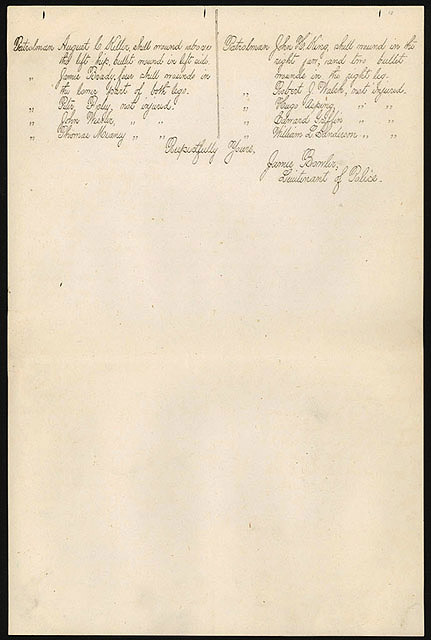 Patrolman August C. Killer, shell wound above
the left hip, bullet wound in left side.
" James Brady, four shell wounds in
the lower part of both legs.
" Peter Foley, not injured.
" John Werner, " "
" Thomas Meaney " "
Patrolman John H. King, shell wound in the
right ear, and two bullet
wounds in the right leg.
" Robert J. Walsh, not injured.
" Hugo Asping, " "
" Edward Griffin " "
" William L. Sanderson " "
Respectfully Yours,
James Bowler,
Lieutenant of Police.